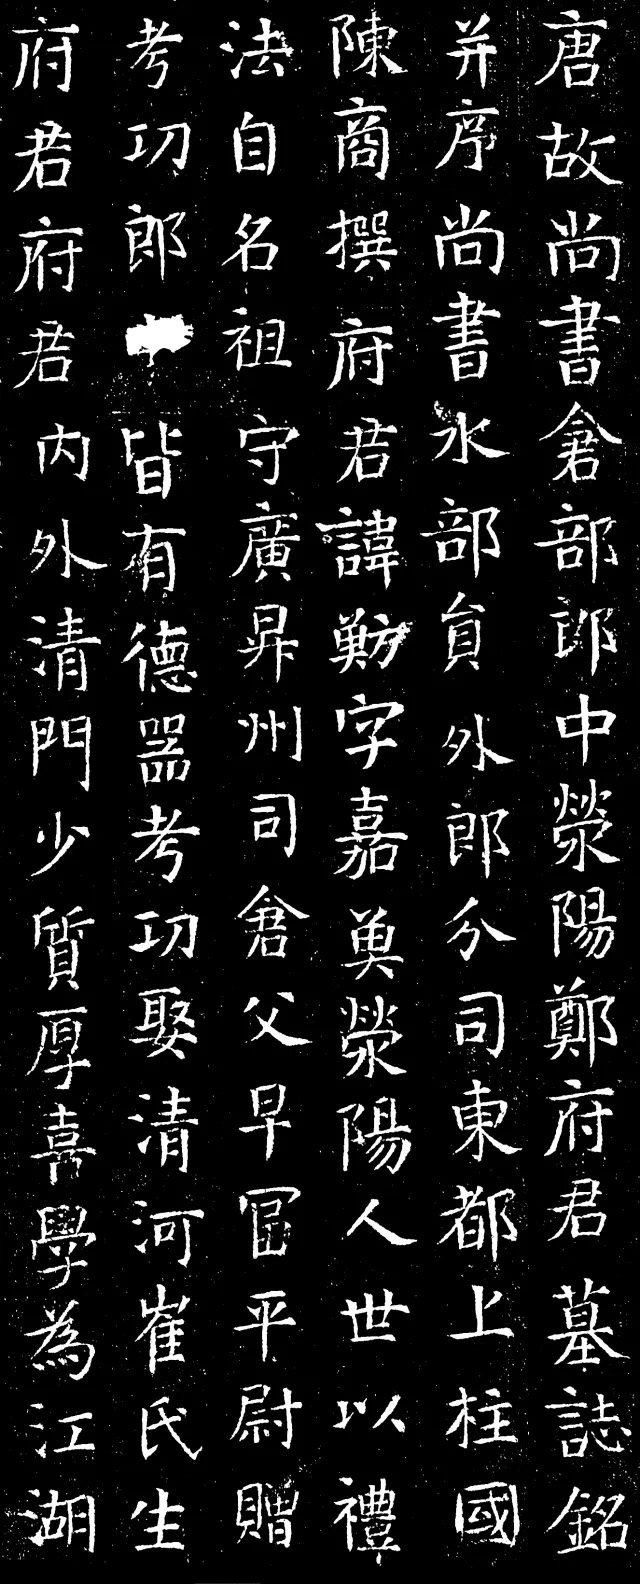 唐故尚書倉部郎中滎陽鄭府君墓誌銘
并序尚書水部員外郎分司東都上柱國
陳商撰府君諱魴字嘉魚滎陽人世以禮
法自名祖守廣昇州司倉父早冨平尉贈
考功郎皆有德器考功娶清河崔氏生
府君府君内外清門少質厚喜學為江湖